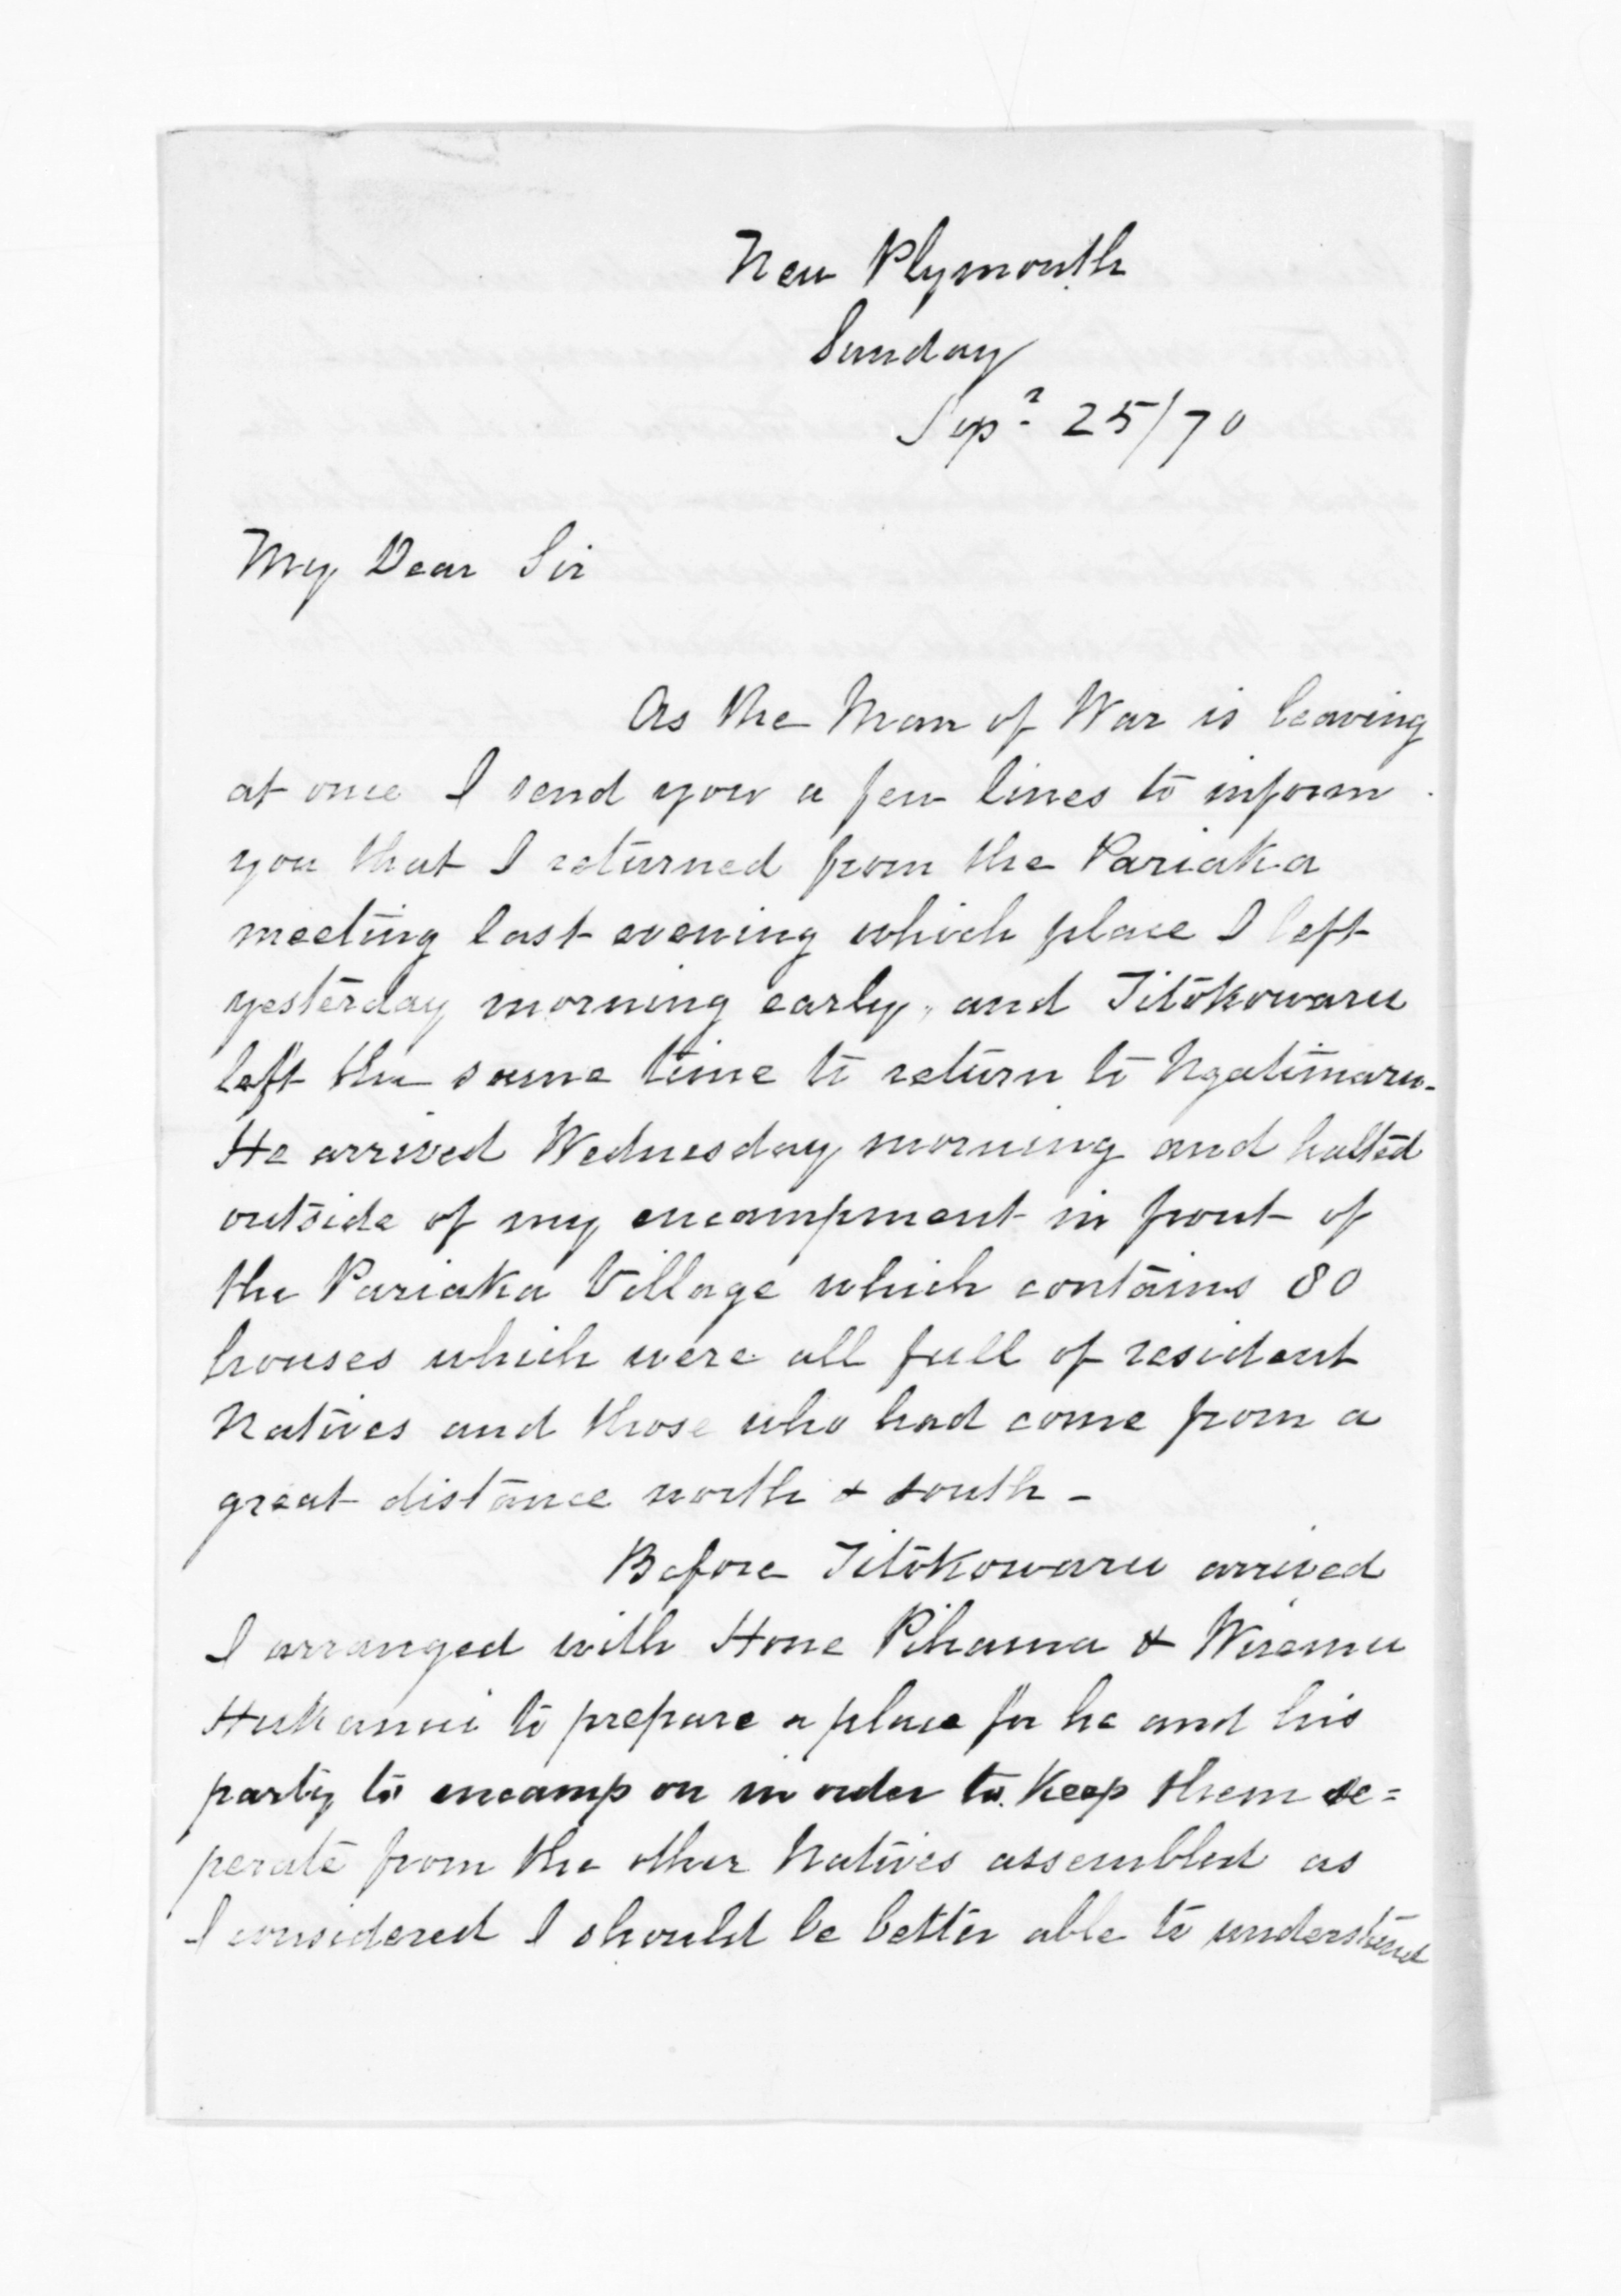 New Plymouth
Sunday
Sepr 25/70
My Dear Sir
As the Man of War is leaving
at once I send you a few lines to inform
you that I returned from the Pariaka
meeting last evening which place I left
yesterday morning early, and Titokowaru
left the same time to return to Ngatimaru.
He arrived Wednesday morning and halted
outside of my encampment in front of
the Pariaka Village which contains 80
houses which were all full of resident
Natives and those who had come from a
great distance north & south -
Before Titokowaru arrived
I arranged with Hone Pihama & Wiremu
Hukanui to prepare a place for he and his
party to encamp on in order to keep them se=
perate from the other Natives assembled as
I considered I should be better able to understand